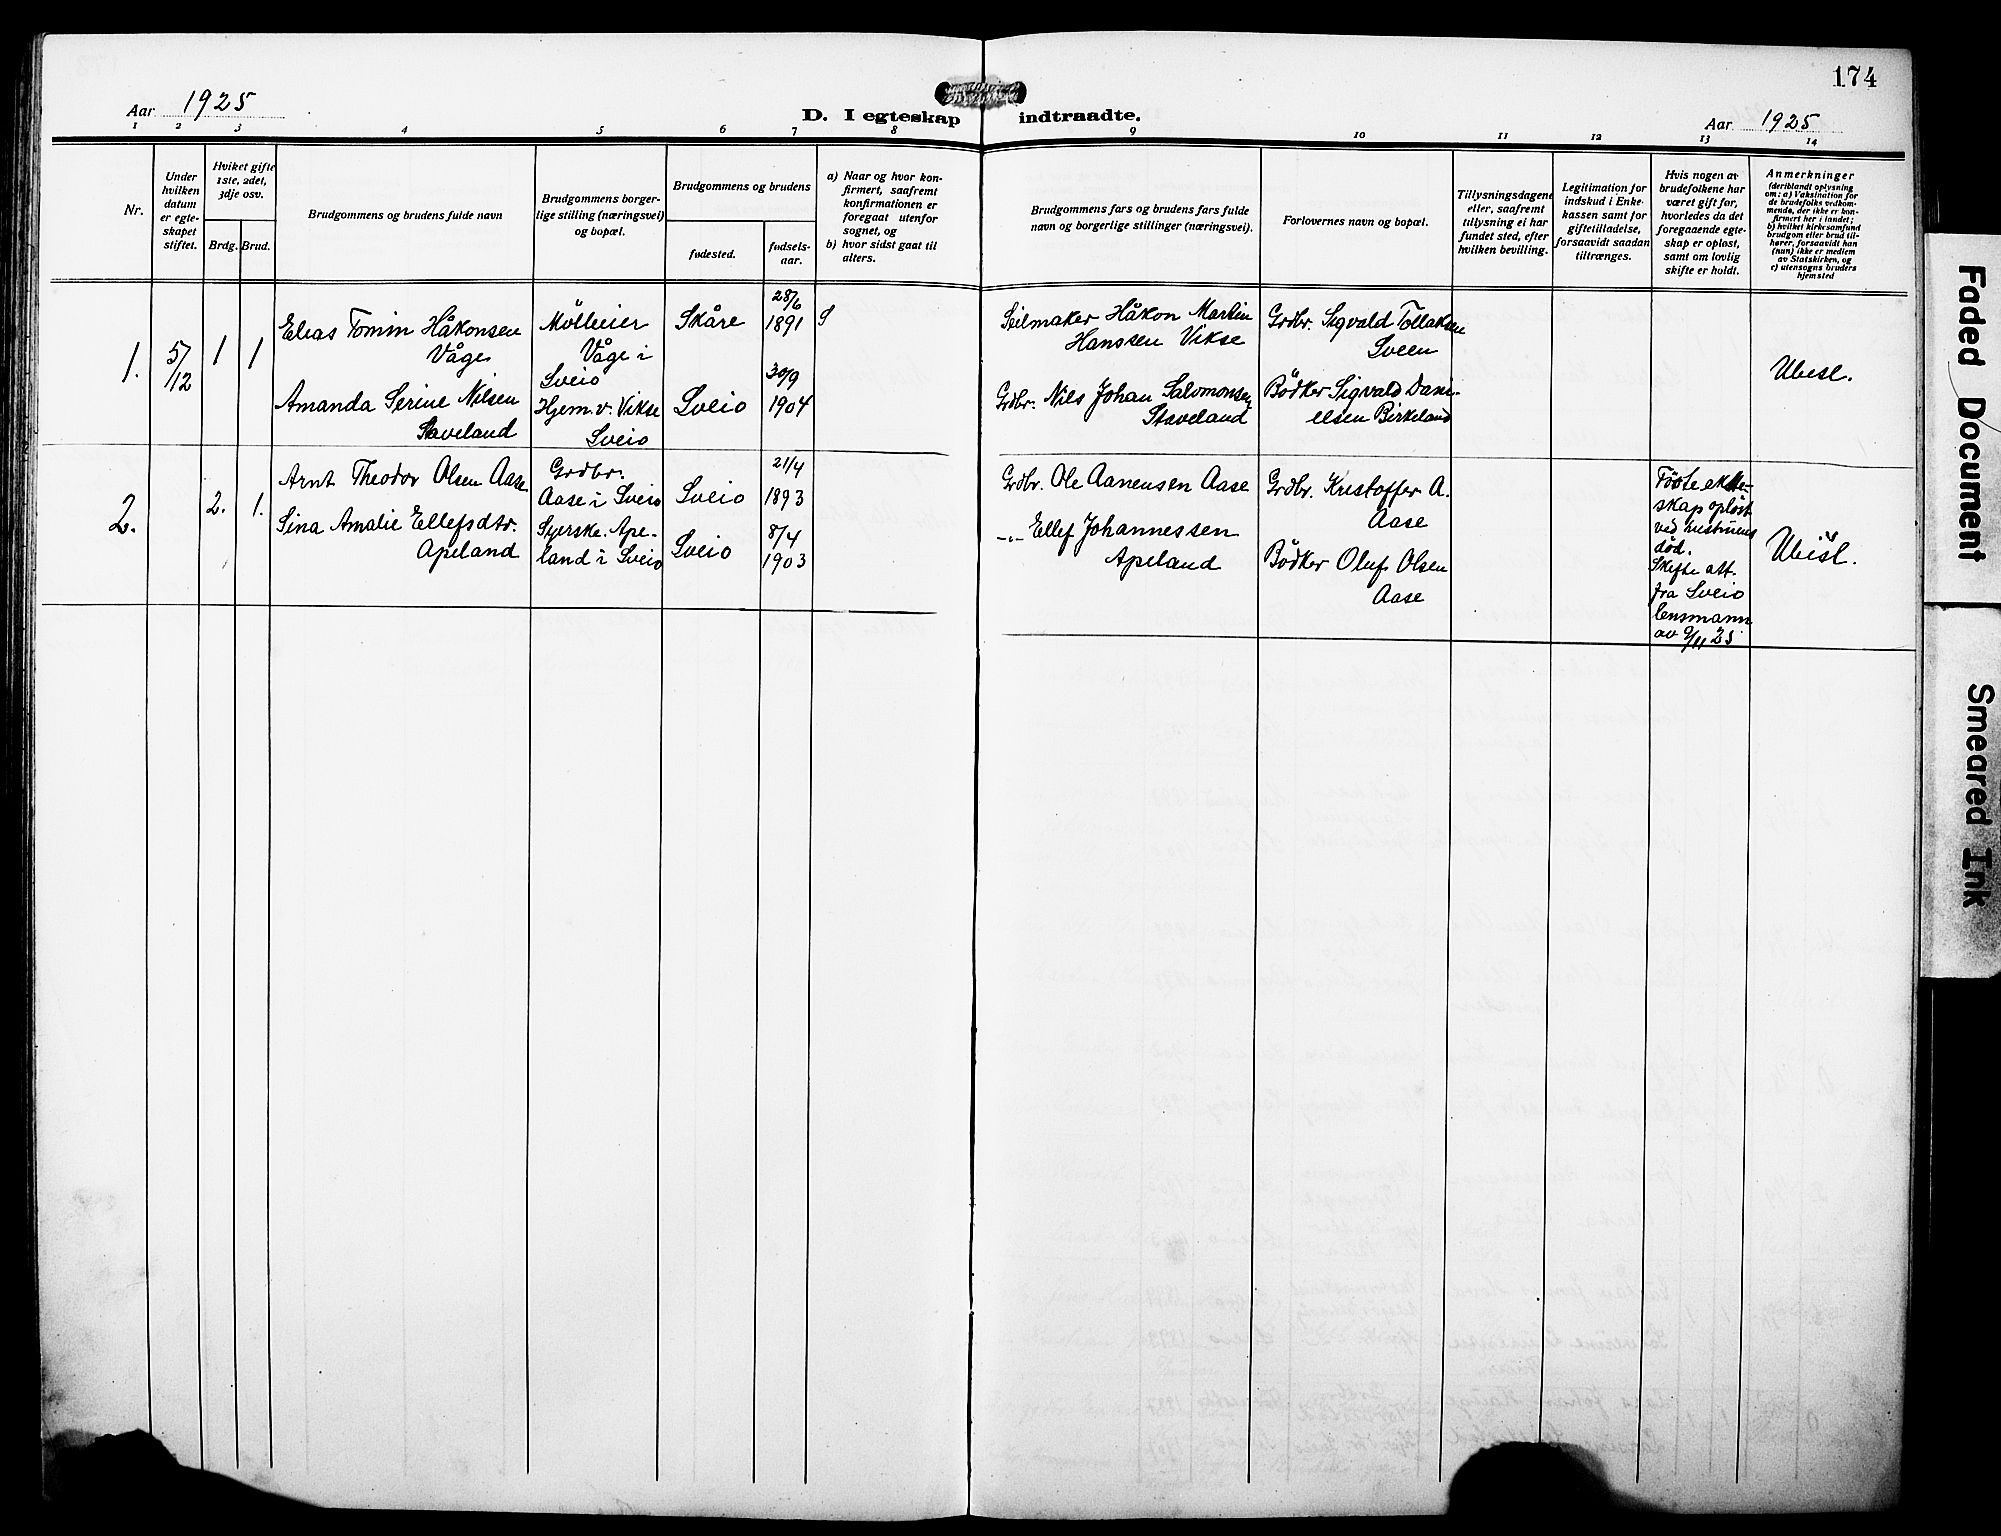 174
Aar 1925
D. I egteskap indtraadte.
Aar 1925
1 2 3 4 5 6 7 8 9 10 11 12 13 14
Nr.
Under
hvilken
datum
er egte-
skapet
stiftet.
Hviket gifte
1ste, 2det,
3dje osv.
Brdg. Brud.
Brudgommens og brudens fulde navn
Brudgommens borger-
lige stilling (næringsvei)
og bopæl.
Brudgommens og brudens
fødested.
fødsels-
aar.
a) Naar og hvor kon-
firmert, saafremt
konfirmationen er
foregaat utenfor
sognet, og
b) hvor sidst gaat til
alters.
Brudgommens fars og brudens fars fulde
navn og borgerlige stillinger (næringsvei).
Forlovernes navn og bopæl.
Tillysningsdagene
eller, saafremt
tillysning ei har
fundet sted, efter
hvilken bevilling.
Legitimation for
indskud i Enke-
kassen samt for
giftetilladelse,
forsaavidt saadan
tiltrænges.
Hvis nogen av
brudefolkene har
været gift før,
hvorledes da det
foregaaende egte-
skap er opløst,
samt om lovlig
skifte er holdt.
Anmerkninger
(deriblandt oplysning
om: a) Vaksination for
de brudefolks vedkom-
mende, der ikke er kon-
firmert her i landet;
b) hvilket kirkesamfund
brudgom eller brud til-
hører, forsaavidt han
(hun) ikke er medlem
av Statskirken, og
c) utensogns bruders
hjemsted
1. 5/12 1 1
Elias Tomin Håkonsen
Våge
Mølleier
Våge i
Sveio
Skåre
28/6
1891
S
Seilmaker Håkon Martin
Hanssen Vikse
Grdbr. Sigvald Tollaksen
Sveen
Amanda Serine Nilsen
Staveland
Hjem. v. Vikse
Sveio
Sveio
30/9
1904
Grdbr. Nils Johan Salomonsen
Staveland
Bødker Sigvald Dani-
elsen Birkeland
Ubesl.
2. 2. 1.
Arnt Theodor Olsen Aase
Grdbr.
Aase i Sveio
Sveio
21/4
1893
Grdbr. Ole Aanensen Aase
Grdbr. Kristoffer A.
Aase
Sina Amalie Ellefsdtr.
Apeland
Syerske. Ape-
land i Sveio
Sveio
8/4
1903
-"- Ellef Johannessen
Apeland
Bødker Oluf Olsen
Aase
Første ekte-
skap opløst
ved hustruens
død.
Skifte att.
fra Sveio
lensmann
av 9/11 25
Ubesl.
Faded Document
Smeared Ink